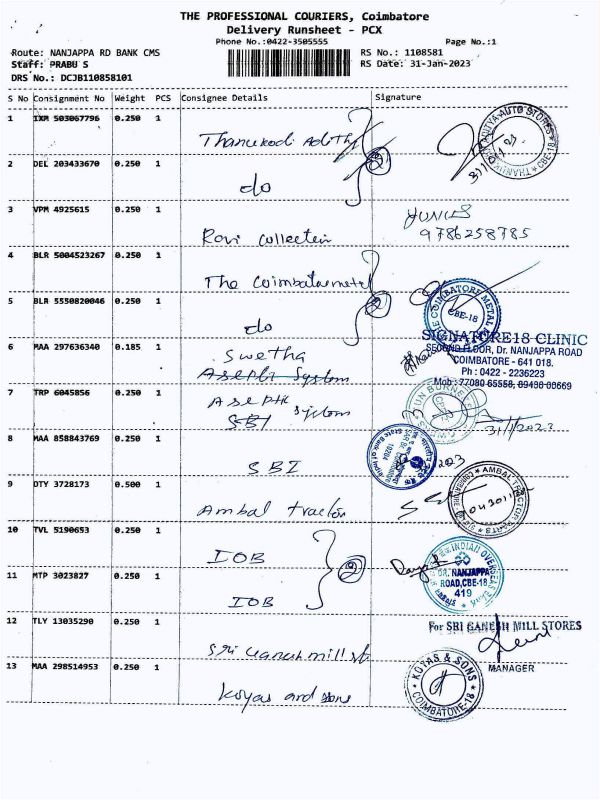 THE PROFESSIONAL COURIERS, Coimbatore
Delivery Runsheet - PCX
Phone No.:0422-3505555 Page No.:1
Route: NANJAPPA RD BANK CMS RS No.: 1108581
Staff: PRABU S RS Date: 31-Jan-2023
DRS No.: DCJB110858101
S No Consignment No Weight PCS Consignee Details Signature
1 IXM 503067796 0.250 1
AUTO STORES CBE-18
2 DEL 203433670 0.250 1
do
3 VPM 4925615 0.250 1
9786258785
4 BLR 5004523267 0.250 1
The
5 BLR 5550820046 0.250 1
CBE-18
do
SIGNATURE18 CLINIC
SECOND FLOOR, Dr. NANJAPPA ROAD
COIMBATORE - 641 018.
Ph : 0422 - 2236223
Mob : 77080 65558, 89400 00669
6 MAA 297636340 0.185 1
Swetha
System
7 TRP 6045856 0.250 1
System
SBI
31/1/2023
8 MAA 858843769 0.250 1
State Bank of India
SBI
9 DTY 3728173 0.500 1
AMBAL TRACTOR PARTS
Ambal tractor
10 TVL 5190653 0.250 1
IOB
INDIAN OVERSEAS
DR. NANJAPPA
ROAD,CBE-18
419
11 MTP 3023827 0.250 1
IOB
12 TLY 13035290 0.250 1
For SRI GANESH MILL STORES
Sri Ganesh mill
MANAGER
13 MAA 298514953 0.250 1
KOYAS & SONS
COIMBATORE-18
Koyas and sons